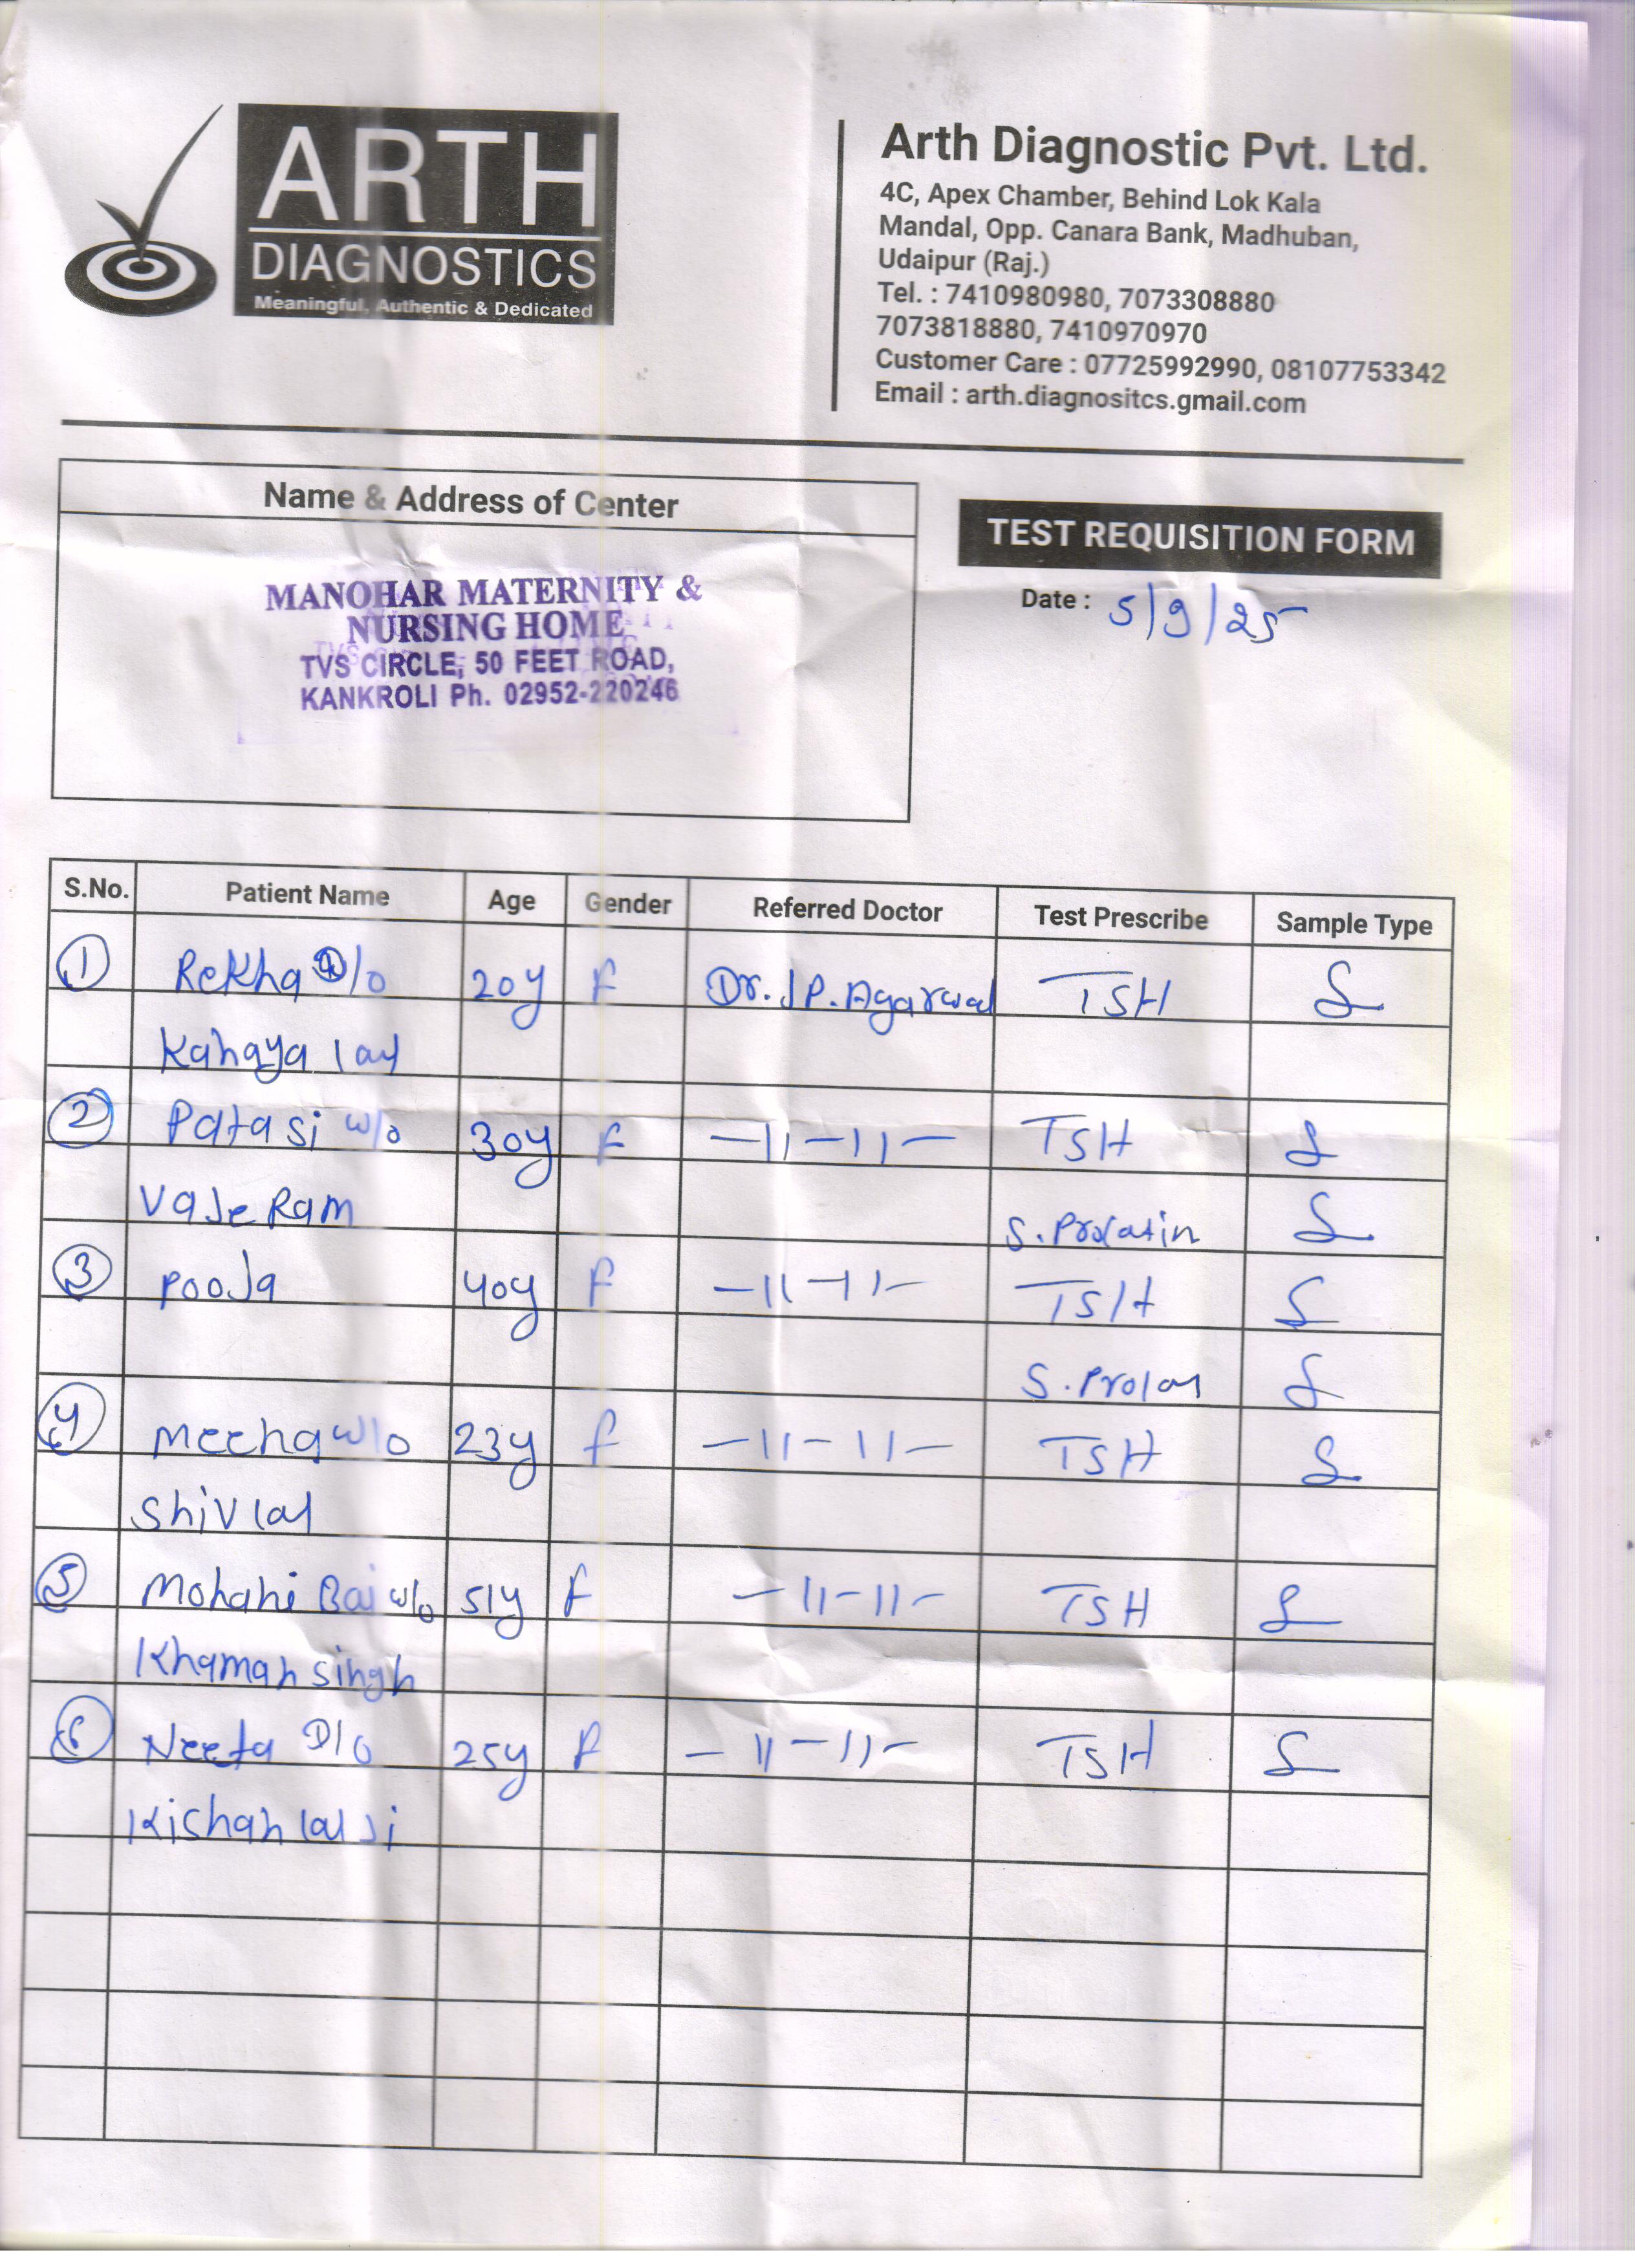 ARTH
DIAGNOSTICS
Meaningful, Authentic & Dedicated
Arth Diagnostic Pvt. Ltd.
4C, Apex Chamber, Behind Lok Kala
Mandal, Opp. Canara Bank, Madhuban,
Udaipur (Raj.)
Tel. : 7410980980, 7073308880
7073818880, 7410970970
Customer Care : 07725992990, 08107753342
Email : arth.diagnositcs.gmail.com
Name & Address of Center
MANOHAR MATERNITY &
NURSING HOME
TVS CIRCLE, 50 FEET ROAD,
KANKROLI Ph. 02952-220246
TEST REQUISITION FORM
Date : 5/9/25
S.No. Patient Name Age Gender Referred Doctor Test Prescribe Sample Type
1 Rekha D/o 20y F Dr. J P. Agarwal TSH S
Kahaya lal
2 Patasi w/o 30y F —11—11— TSH S
VaJe Ram S. Prolatin S
3 PooJa 40y F —11—11— TSH S
S. Prolan S
4 Meena w/o 23y F —11—11— TSH S
Shiv lal
5 Mohani Bai w/o 51y F —11—11— TSH S
Khaman singh
6 Neeta D/o 25y F —11—11— TSH S
Kishan lal Ji